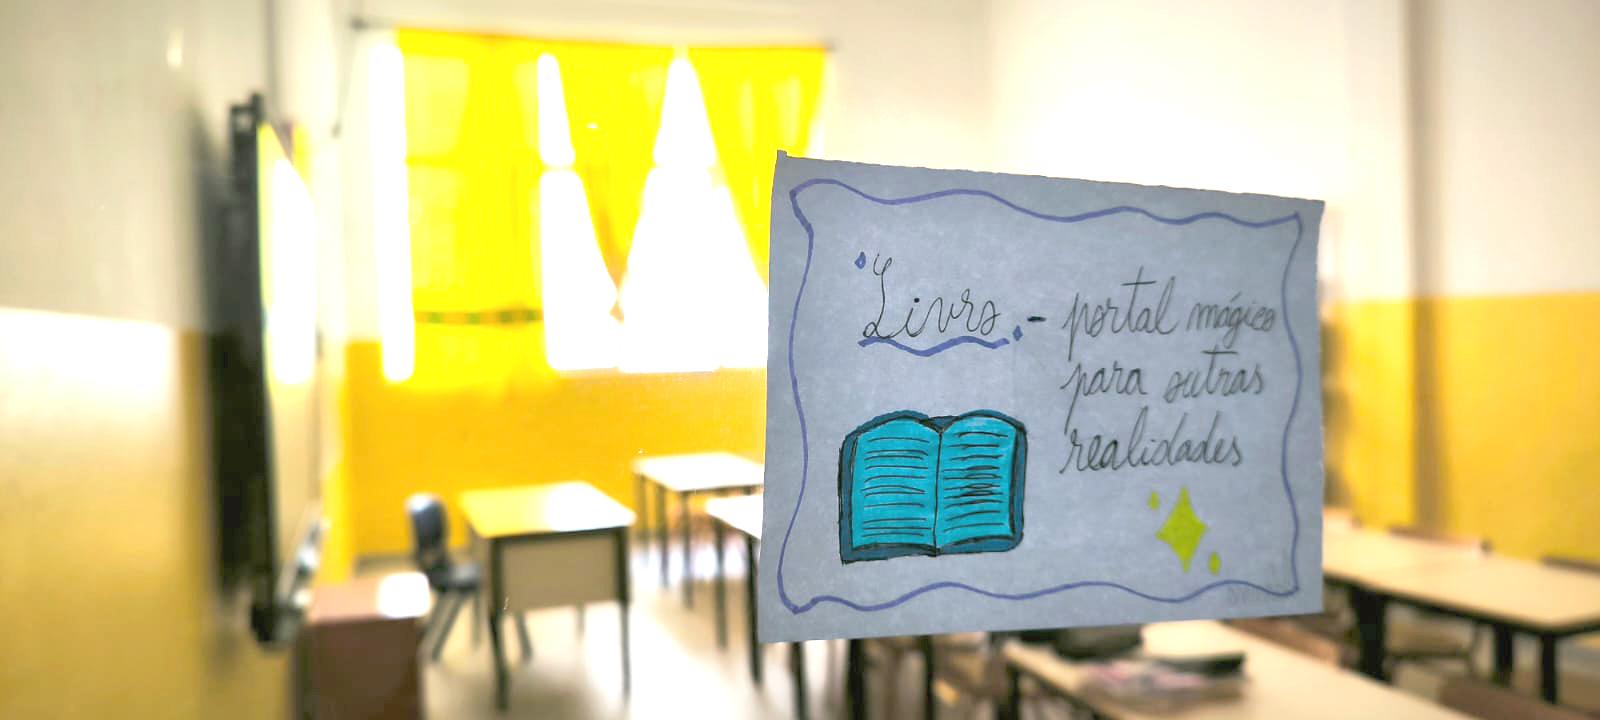 Livro - portal mágico
para outras
realidades